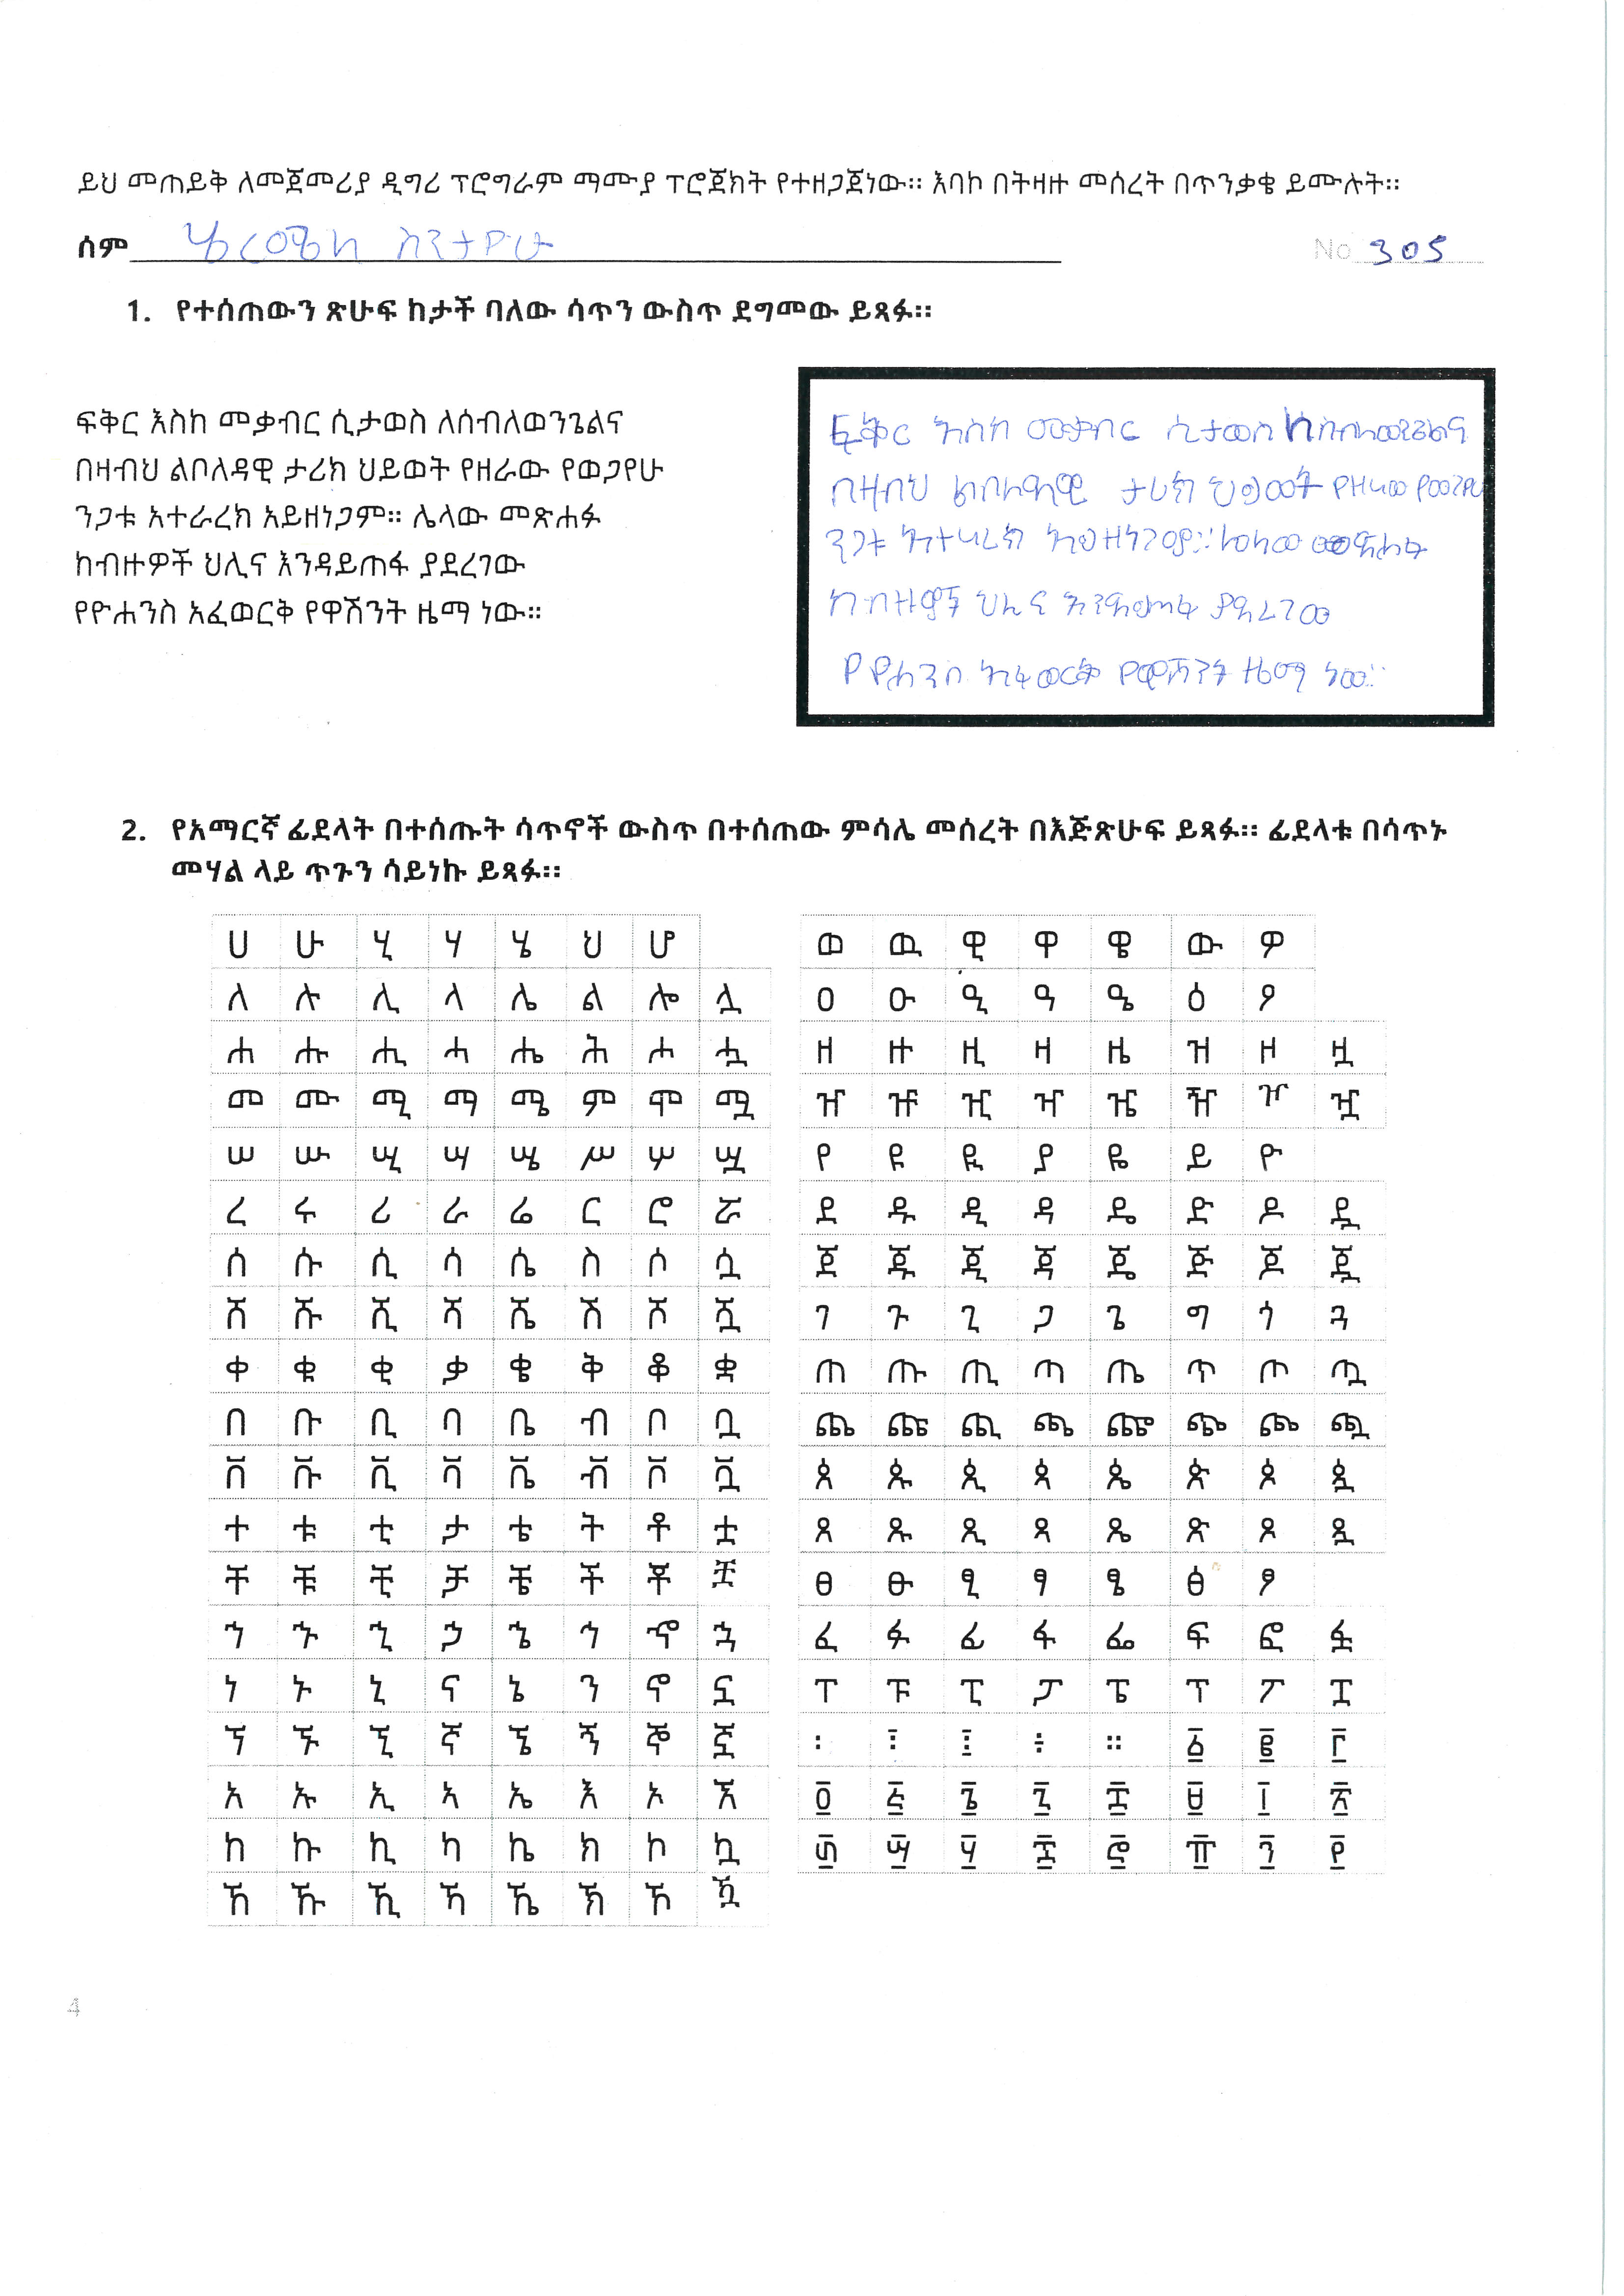 ይህ መጠይቅ ለመጀመሪያ ዲግሪ ፕሮግራም ማሙያ ፕሮጀክት የተዘጋጀነው። እባኮ በትዛዙ መሰረት በጥንቃቄ ይሙሉት።
ስም
No 305
1. የተሰጠውን ጽሁፍ ከታች ባለው ሳጥን ውስጥ ደግመው ይጻፉ።
ፍቅር እስከ መቃብር ሲታወስ ለሰብለወንጌልና
በዛብህ ልቦለዳዊ ታሪክ ህይወት የዘራው የወጋየሁ
ንጋቱ አተራረክ አይዘነጋም። ሌላው መጽሐፉ
ከብዙዎች ህሊና እንዳይጠፋ ያደረገው
የዮሐንስ አፈወርቅ የዋሽንት ዜማ ነው።
ፍቅር እስከ መቃብር ሲታወስ ለሰብለወንጌልና
በዛብህ ልቦለዳዊ ታሪክ ህይወት የዘራው የወጋየሁ
ንጋቱ አተራረክ አይዘነጋም። ሌላው መጽሐፉ
ከብዙዎች ህሊና እንዳይጠፋ ያደረገው
የዮሐንስ አፈወርቅ የዋሽንት ዜማ ነው።
2. የአማርኛ ፊደላት በተሰጡት ሳጥኖች ውስጥ በተሰጠው ምሳሌ መሰረት በእጅጽሁፍ ይጻፉ። ፊደላቱ በሳጥኑ
መሃል ላይ ጥጉን ሳይነኩ ይጻፉ።
ሀ ሁ ሂ ሃ ሄ ህ ሆ
ለ ሉ ሊ ላ ሌ ል ሎ ሏ
ሐ ሑ ሒ ሓ ሔ ሕ ሖ ሗ
መ ሙ ሚ ማ ሜ ም ሞ ሟ
ሠ ሡ ሢ ሣ ሤ ሥ ሦ ሧ
ረ ሩ ሪ ራ ሬ ር ሮ ሯ
ሰ ሱ ሲ ሳ ሴ ስ ሶ ሷ
ሸ ሹ ሺ ሻ ሼ ሽ ሾ ሿ
ቀ ቁ ቂ ቃ ቄ ቅ ቆ ቋ
በ ቡ ቢ ባ ቤ ብ ቦ ቧ
ቨ ቩ ቪ ቫ ቬ ቭ ቮ ቯ
ተ ቱ ቲ ታ ቴ ት ቶ ቷ
ቸ ቹ ቺ ቻ ቼ ች ቾ ቿ
ኀ ኁ ኂ ኃ ኄ ኅ ኆ ኋ
ነ ኑ ኒ ና ኔ ን ኖ ኗ
ኘ ኙ ኚ ኛ ኜ ኝ ኞ ኟ
አ ኡ ኢ ኣ ኤ እ ኦ ኧ
ከ ኩ ኪ ካ ኬ ክ ኮ ኳ
ኸ ኹ ኺ ኻ ኼ ኽ ኾ ዃ
ወ ዉ ዊ ዋ ዌ ው ዎ
ዐ ዑ ዒ ዓ ዔ ዕ ዖ
ዘ ዙ ዚ ዛ ዜ ዝ ዞ ዟ
ዠ ዡ ዢ ዣ ዤ ዥ ዦ ዧ
የ ዩ ዪ ያ ዬ ይ ዮ
ደ ዱ ዲ ዳ ዴ ድ ዶ ዷ
ጀ ጁ ጂ ጃ ጄ ጅ ጆ ጇ
ገ ጉ ጊ ጋ ጌ ግ ጎ ጓ
ጠ ጡ ጢ ጣ ጤ ጥ ጦ ጧ
ጨ ጩ ጪ ጫ ጬ ጭ ጮ ጯ
ጰ ጱ ጲ ጳ ጴ ጵ ጶ ጷ
ጸ ጹ ጺ ጻ ጼ ጽ ጾ ጿ
ፀ ፁ ፂ ፃ ፄ ፅ ፆ
ፈ ፉ ፊ ፋ ፌ ፍ ፎ ፏ
ፐ ፑ ፒ ፓ ፔ ፕ ፖ ፗ
፡ ፤ ፥ ፦ ። ፩ ፪ ፫
፬ ፭ ፮ ፯ ፰ ፱ ፲ ፳
፴ ፵ ፶ ፷ ፸ ፹ ፺ ፻
4